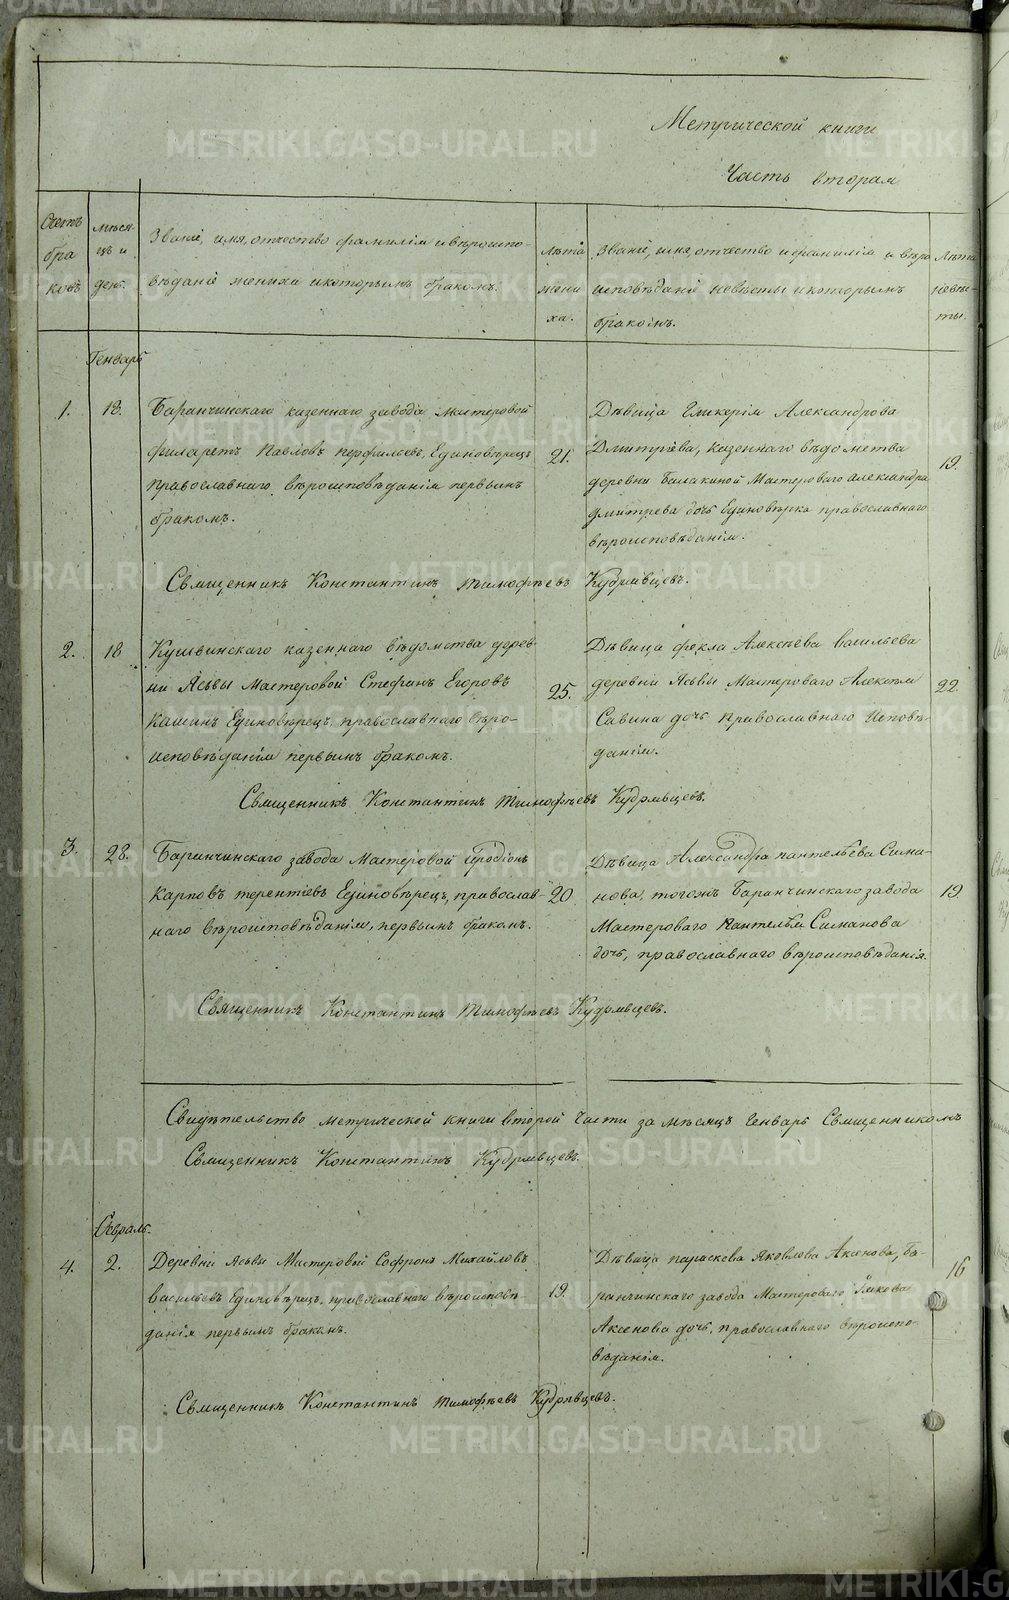 Метрической книги
Часть вторая
Счетъ браковъ
мѣсяцъ и день.
Званіе, имя, отчество фамилія и вѣроиспо-
вѣданіе жениха и которымъ бракомъ.
Лѣта жениха.
Званіе, имя, отчество и фамилія и вѣро
исповѣданіе невѣсты и которымъ
бракомъ.
Лѣта невѣсты.
Генварь
1. 18.
Баранчинскаго казеннаго завода мастеровой
филаретъ Павловъ перфильевъ, Единовѣрецъ
православнаго вѣроисповѣданія первымъ
бракомъ.
21.
Дѣвица Гликерія Александрова
Дмитріева, казеннаго вѣдомства
деревни Балакиной Мастероваго александра
дмитрева дочь Единовѣрка православнаго
вѣроисповѣданія.
19.
Священникъ Константинъ тимофѣевъ Кудрявцевъ.
2. 18
Кушвинскаго казеннаго вѣдомства дерев-
ни Асьвы Мастеровой Стефанъ Егоровъ
Кашинъ Единовѣрецъ, православнаго вѣро-
исповѣданія первымъ бракомъ.
25.
Дѣвица фекла Алексѣева васильева
деревни Асьвы Мастероваго Алексѣя
Савина дочь православнаго Исповѣ-
данія.
22.
Священникъ Константинъ Тимофѣевъ Кудрявцевъ.
3. 28.
Баранчинскаго завода Мастеровой Иродіонъ
Карповъ терентіевъ Единовѣрецъ, православ-
наго вѣроисповѣданія, первымъ бракомъ.
20
Дѣвица Александра пантелѣева Сима-
нова, тогожъ Баранчинскаго завода
Мастероваго Пантелѣя Симанова
дочь, православнаго вѣроисповѣданія.
19.
Священникъ Константинъ Тимофѣевъ Кудрявцевъ.
Свидѣтельство метрической книги второй части за мѣсяцъ Генварь Священникомъ
Священникъ Константинъ Кудрявцевъ.
Февраль.
4. 2.
Деревни Асьвы Мастеровой Софронъ Михайловъ
васильевъ Единовѣрецъ, православнаго вѣроисповѣ-
данія первымъ бракомъ.
19.
Дѣвица параскева Яковлова Аксенова, ба-
ранчинскаго завода Мастероваго Якова
Аксенова дочь, православнаго вѣроиспо-
вѣданія.
16
Священникъ Константинъ тимофѣевъ Кудрявцевъ.
METRIKI.GASO-URAL.RU